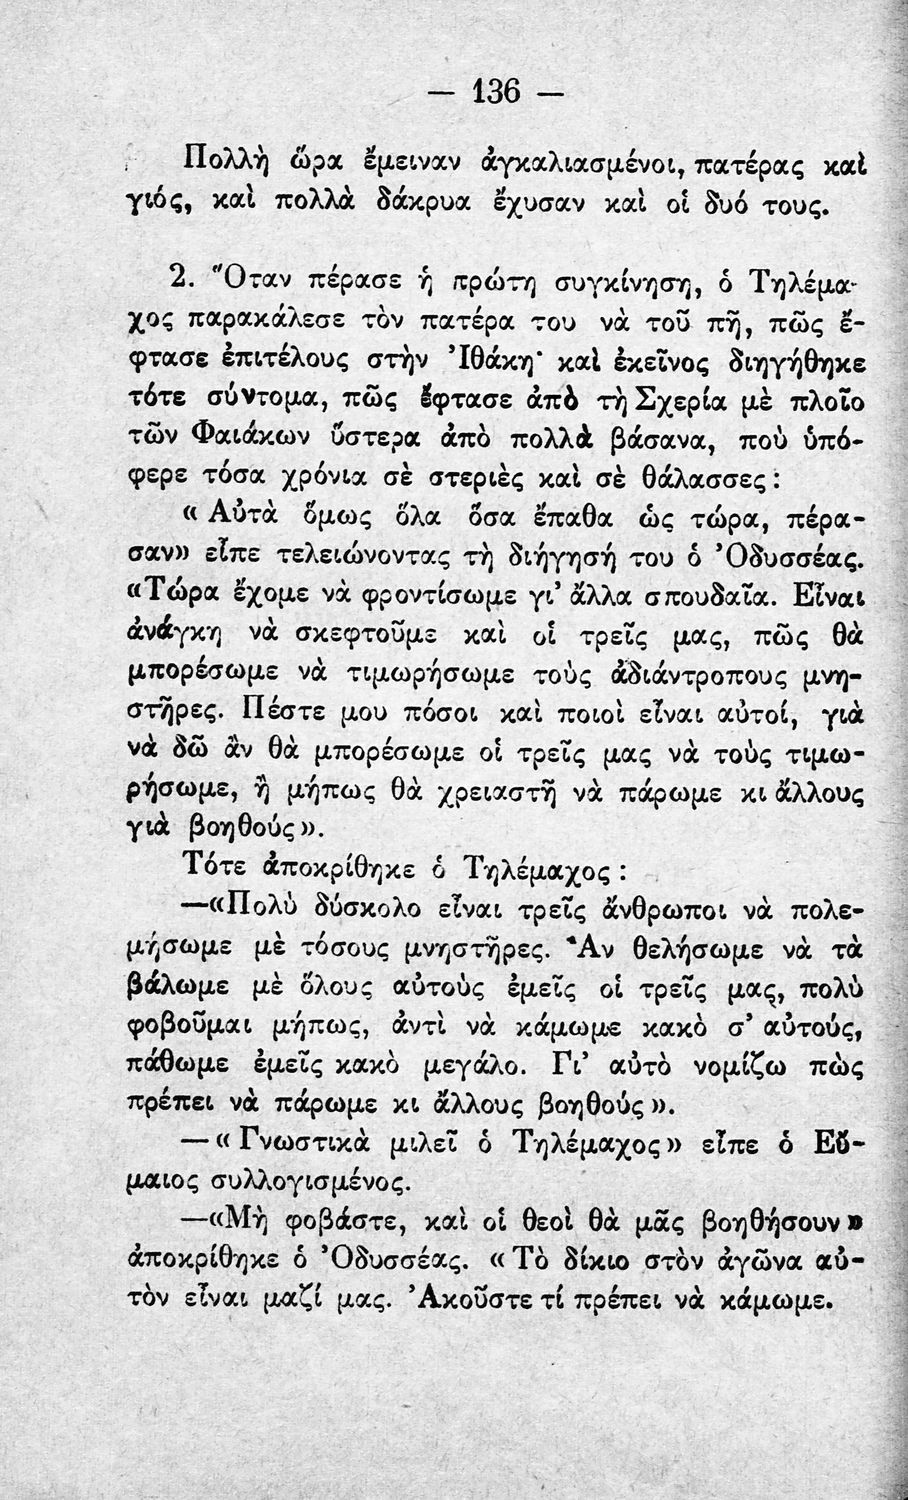 — 136 —
Πολλὴ ὥρα ἔμειναν ἀγκαλιασμένοι, πατέρας καὶ
γιός, καὶ πολλὰ δάκρυα ἔχυσαν καὶ οἱ δυό τους.
2. Ὅταν πέρασε ἡ πρώτη συγκίνηση, ὁ Τηλέμα-
χος παρακάλεσε τὸν πατέρα του νὰ τοῦ πῆ, πῶς ἔ-
φτασε ἐπιτέλους στὴν Ἰθάκη· καὶ ἐκεῖνος διηγήθηκε
τότε σύντομα, πῶς ἔφτασε ἀπὸ τὴ Σχερία μὲ πλοῖο
τῶν Φαιάκων ὕστερα ἀπὸ πολλὰ βάσανα, ποὺ ὑπό-
φερε τόσα χρόνια σὲ στεριὲς καὶ σὲ θάλασσες:
« Αὐτὰ ὅμως ὅλα ὅσα ἔπαθα ὡς τώρα, πέρα-
σαν» εἶπε τελειώνοντας τὴ διήγησή του ὁ Ὀδυσσέας.
«Τώρα ἔχομε νὰ φροντίσωμε γι' ἄλλα σπουδαῖα. Εἶναι
ἀνάγκη νὰ σκεφτοῦμε καὶ οἱ τρεῖς μας, πῶς θὰ
μπορέσωμε νὰ τιμωρήσωμε τοὺς ἀδιάντροπους μνη-
στῆρες. Πέστε μου πόσοι καὶ ποιοὶ εἶναι αὐτοί, γιὰ
νὰ δῶ ἂν θὰ μπορέσωμε οἱ τρεῖς μας νὰ τοὺς τιμω-
ρήσωμε, ἢ μήπως θὰ χρειαστῆ νὰ πάρωμε κι ἄλλους
γιὰ βοηθούς».
Τότε ἀποκρίθηκε ὁ Τηλέμαχος:
—«Πολὺ δύσκολο εἶναι τρεῖς ἄνθρωποι νὰ πολε-
μήσωμε μὲ τόσους μνηστῆρες. Ἂν θελήσωμε νὰ τὰ
βάλωμε μὲ ὅλους αὐτοὺς ἐμεῖς οἱ τρεῖς μας, πολὺ
φοβοῦμαι μήπως, ἀντὶ νὰ κάμωμε κακὸ σ' αὐτούς,
πάθωμε ἐμεῖς κακὸ μεγάλο. Γι' αὐτὸ νομίζω πὼς
πρέπει νὰ πάρωμε κι ἄλλους βοηθούς».
—« Γνωστικὰ μιλεῖ ὁ Τηλέμαχος» εἶπε ὁ Εὔ-
μαιος συλλογισμένος.
—«Μὴ φοβάστε, καὶ οἱ θεοὶ θὰ μᾶς βοηθήσουν»
ἀποκρίθηκε ὁ Ὀδυσσέας. « Τὸ δίκιο στὸν ἀγῶνα αὐ-
τὸν εἶναι μαζί μας. Ἀκοῦστε τί πρέπει νὰ κάμωμε.